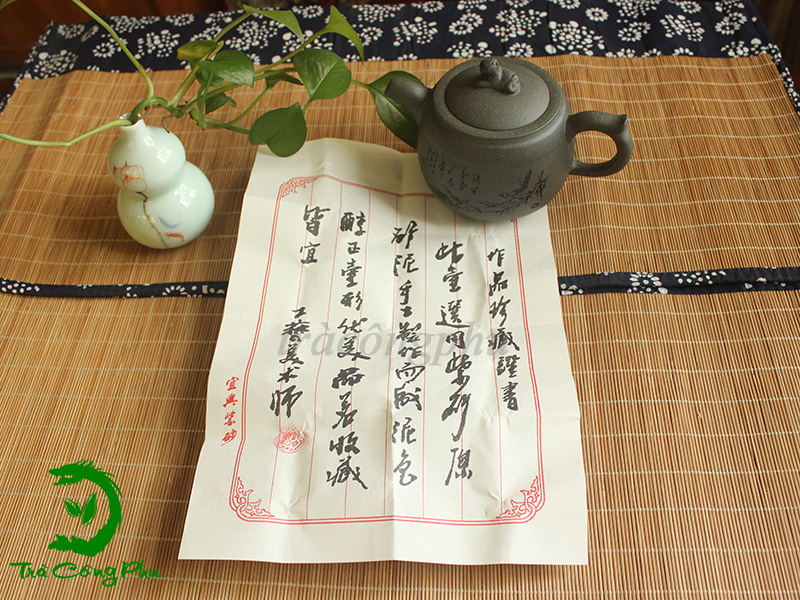 作品珍藏證書
此壷選用紫砂原
矿泥手工製作而成泥色
醇正壷形优美品茗收藏
皆宜
工藝美术師
宜興紫砂
tràcôngphu
Trà Công Phu